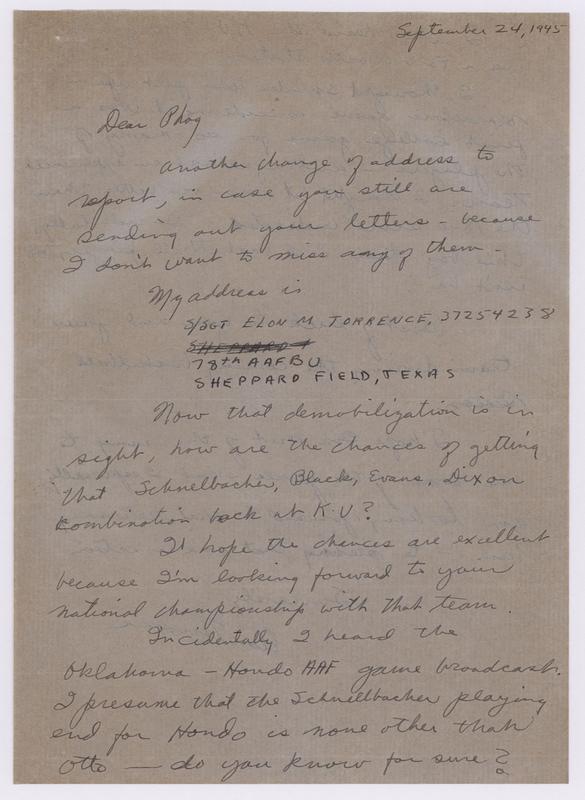 September 24, 1945
Dear Phog
Another change of address to
report, in case you still are
sending out your letters - because
I don't want to miss any of them -
My address is
S/SGT ELON M. TORRENCE, 37254238
SHEPPARD
78th AAFBU
SHEPPARD FIELD, TEXAS
Now that demobilization is in
sight, how are the chances of getting
that Schnelbacher, Black, Evans, Dixon
Kombination back at K.U?
I hope the chances are excellent
because I'm looking forward to your
national championship with that team.
Incidentally I heard the
Oklahoma - Hondo AAF game broadcast.
I presume that the Schnellbacher playing
end for Hondo is none other than
Otto — do you know for sure?